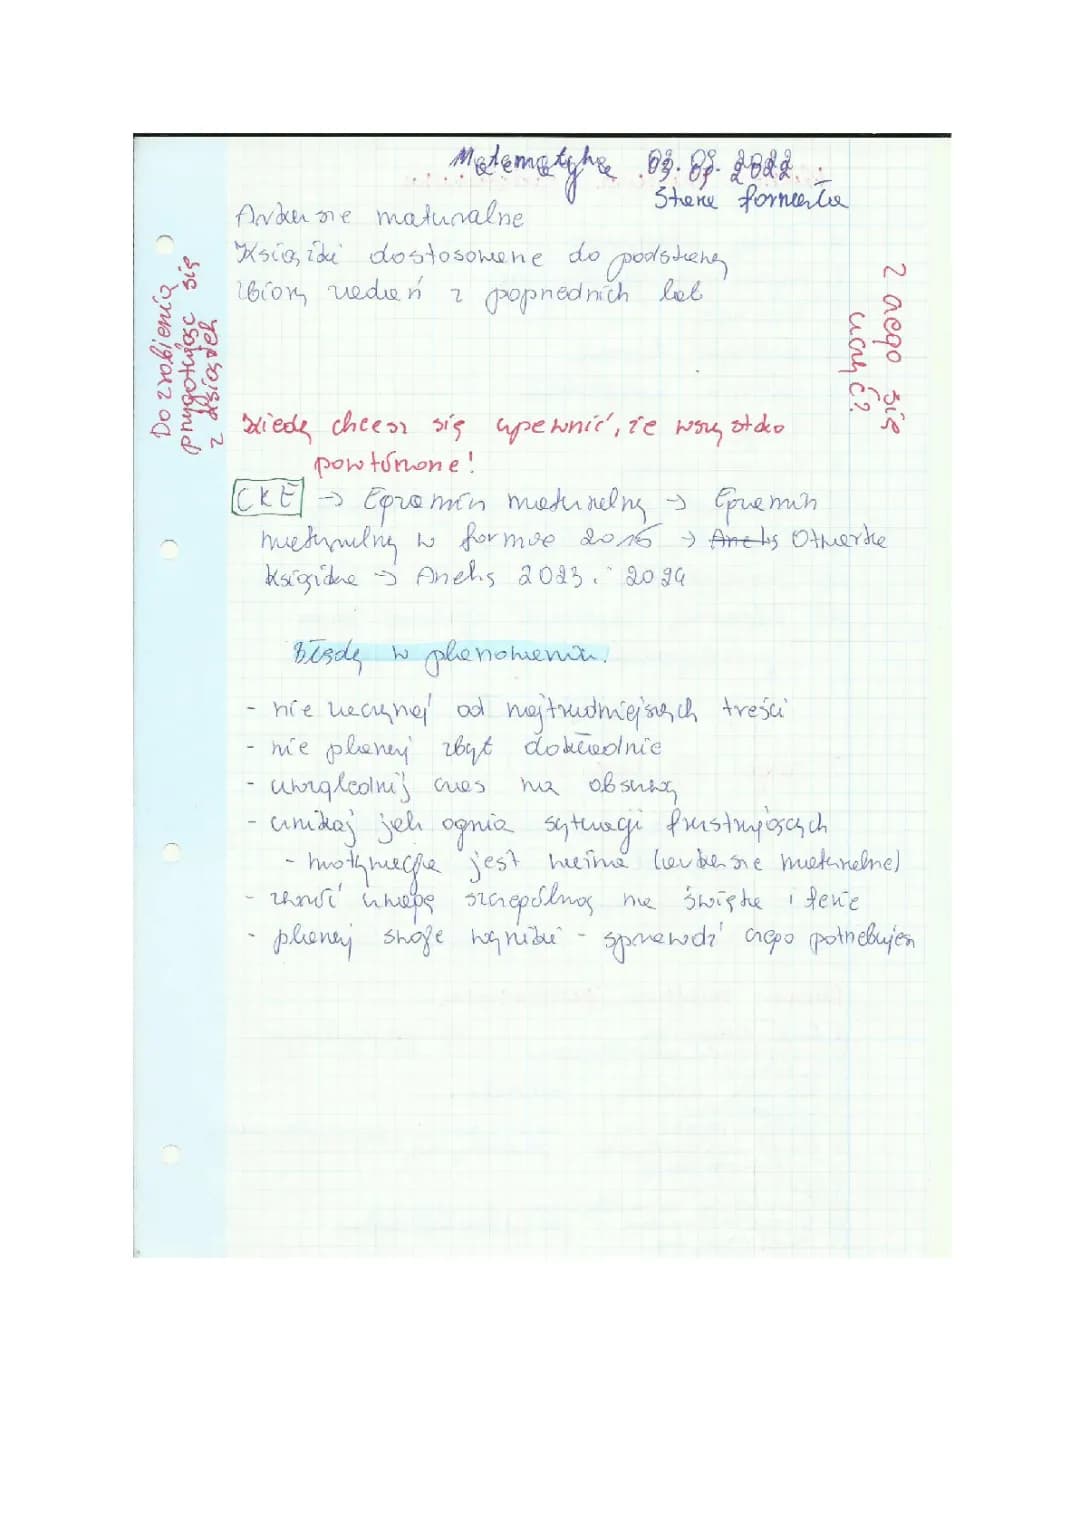 Matematyka 03.09.2022
Stara formuła
Arkusze maturalne
Książki dostosowane do podstawy
Zbiory zadań z poprzednich lat
Z czego się
uczyć?
Do zrobienia
przygotujesz się
z książek
Kiedy chcesz się upewnić, że wszystko
powtórzone!
CKE → Egzamin maturalny → Egzamin
maturalny w formule 2015 → Aneks Otwarte
książkę → Aneks 2023 i 2024
Błędy w planowaniu.
- nie zaczynaj od najtrudniejszych treści
- nie planuj zbyt dokładnie
- uwzględnij czas na obsuwy
- unikaj jak ognia sytuacji frustrujących
- motywacja jest ważna (arkusze maturalne)
- zwróć uwagę szczególną na święta i ferie
- planuj swoje wyniki - sprawdź czego potrzebujesz